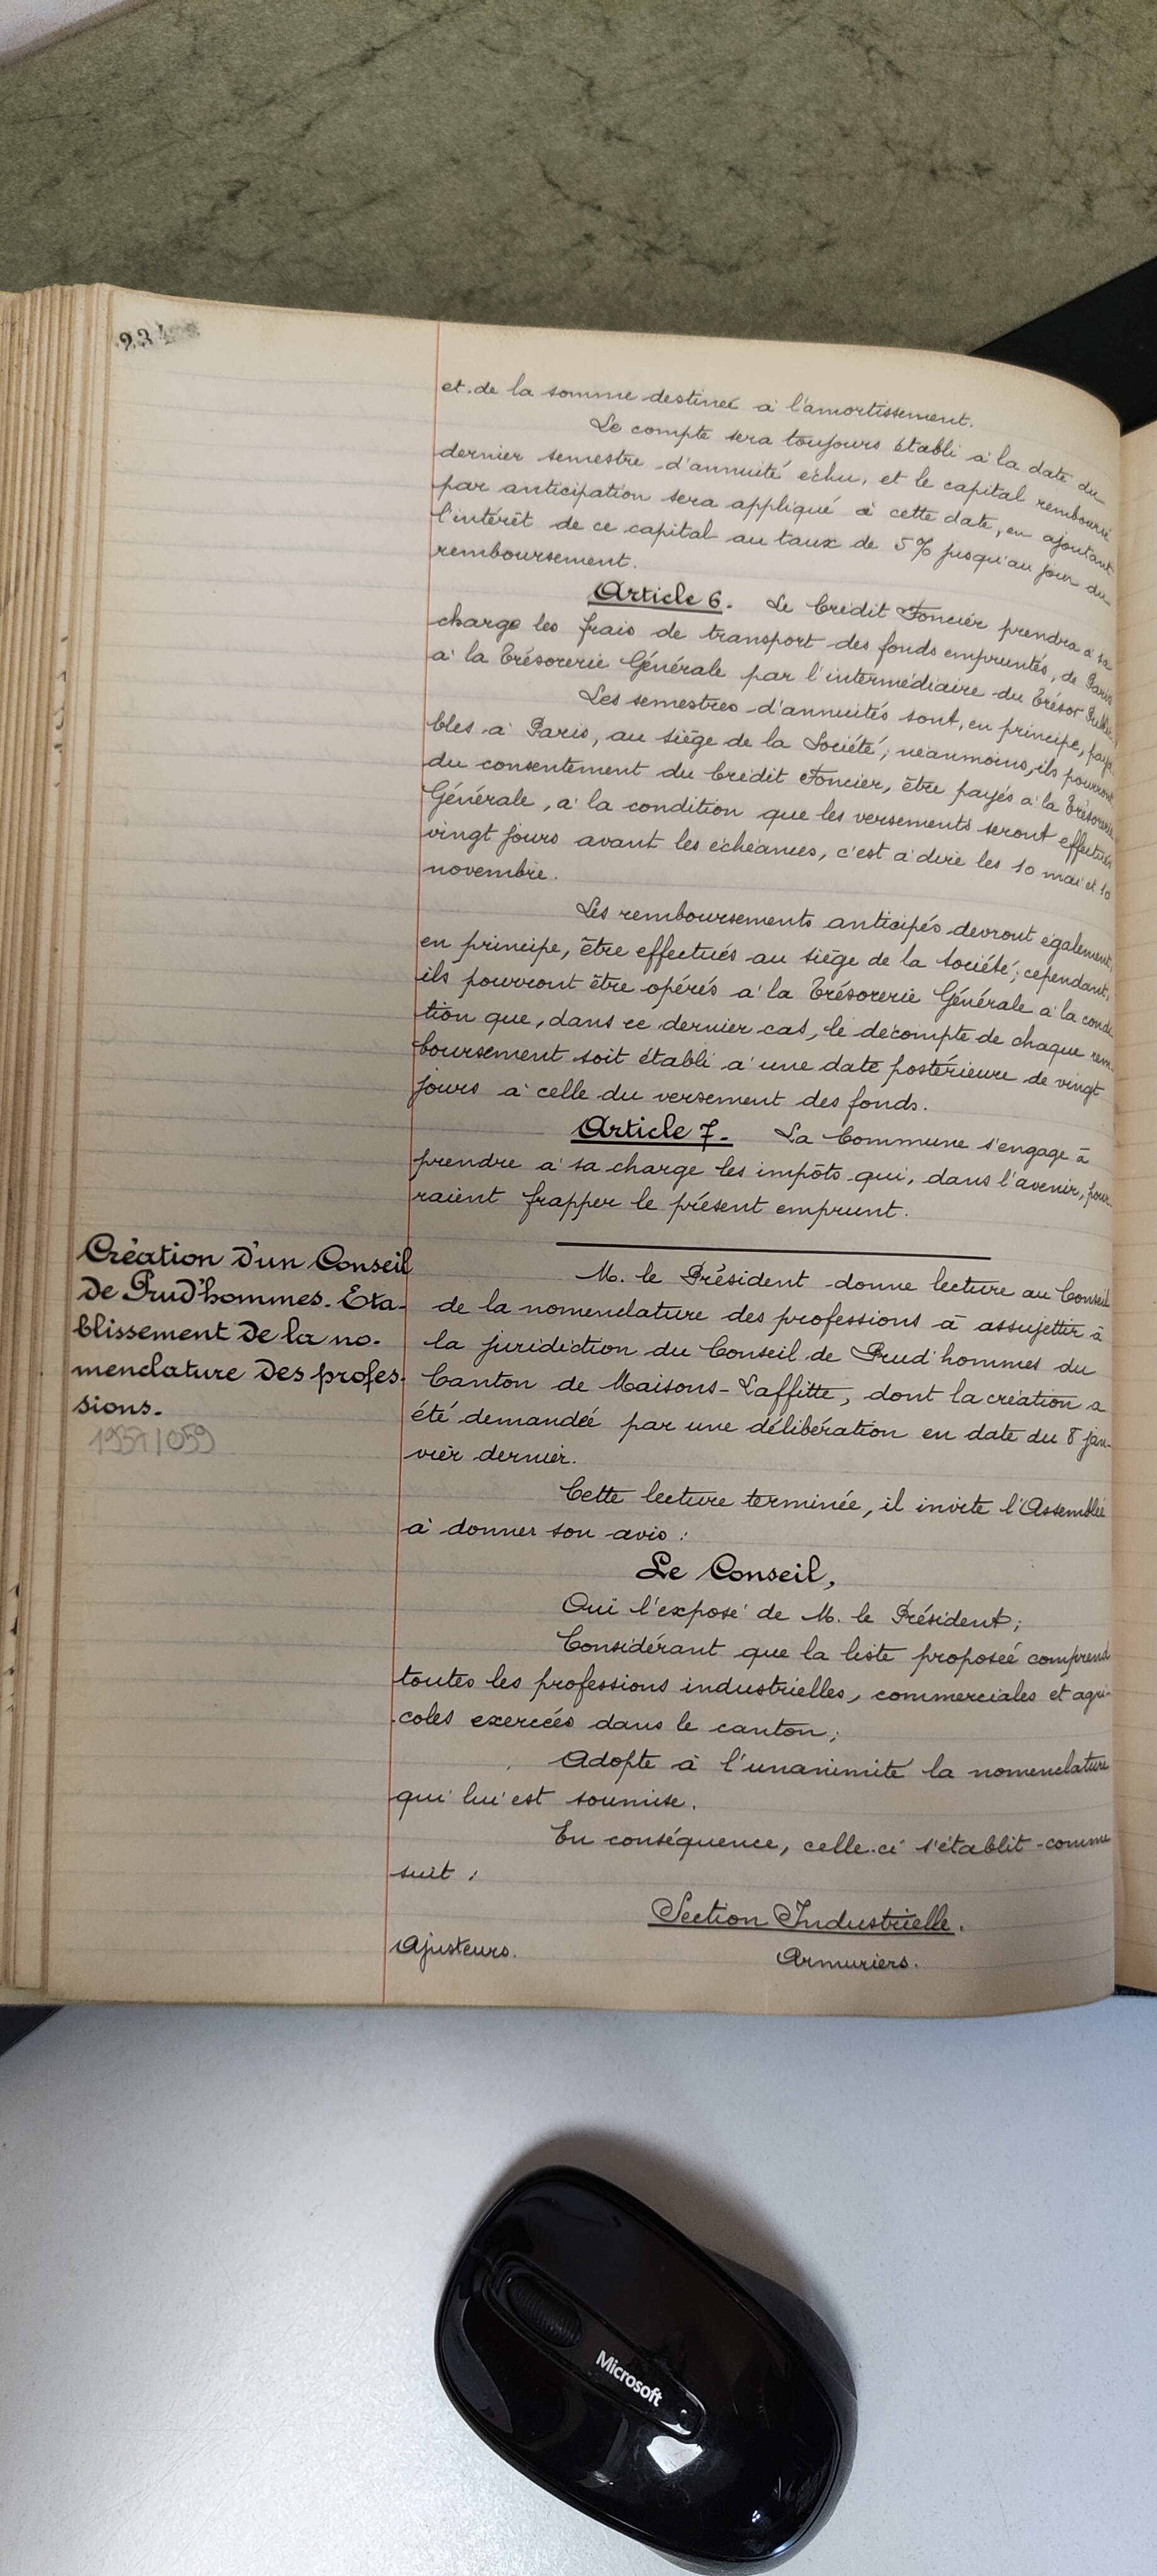 234
et de la somme destinée à l'amortissement.
Le compte sera toujours établi à la date du
dernier semestre d'annuité échu, et le capital remboursé
par anticipation sera appliqué à cette date, en ajoutant
l'intérêt de ce capital au taux de 5% jusqu'au jour du
remboursement.
Article 6. Le Crédit Foncier prendra à sa
charge les frais de transport des fonds empruntés, de Paris
à la Trésorerie Générale par l'intermédiaire du Trésor Public.
Les semestres d'annuités sont, en principe, paya-
bles à Paris, au siège de la Société; néanmoins, ils pourront
du consentement du Crédit Foncier, être payés à la Trésorerie
Générale, à la condition que les versements seront effectués
vingt jours avant les échéances, c'est à dire les 10 mai et 10
novembre.
Les remboursements anticipés devront également,
en principe, être effectués au siège de la Société; cependant,
ils pourront être opérés à la Trésorerie Générale à la condi-
tion que, dans ce dernier cas, le décompte de chaque rem-
boursement soit établi à une date postérieure de vingt
jours à celle du versement des fonds.
Article 7. La Commune s'engage à
prendre à sa charge les impôts qui, dans l'avenir, pour-
raient frapper le présent emprunt.
Création d'un Conseil
de Prud'hommes. Eta-
blissement de la no-
menclature des profes-
sions.
M. le Président donne lecture au Conseil
de la nomenclature des professions à assujettir à
la juridiction du Conseil de Prud'hommes du
Canton de Maisons-Laffitte, dont la création a
été demandée par une délibération en date du 8 jan-
vier dernier.
Cette lecture terminée, il invite l'Assemblée
à donner son avis :
Le Conseil,
Oui l'exposé de M. le Président;
Considérant que la liste proposée comprend
toutes les professions industrielles, commerciales et agri-
coles exercées dans le canton;
Adopte à l'unanimité la nomenclature
qui lui est soumise.
En conséquence, celle-ci s'établit comme
suit :
Section Industrielle.
Ajusteurs. Armuriers.
Microsoft